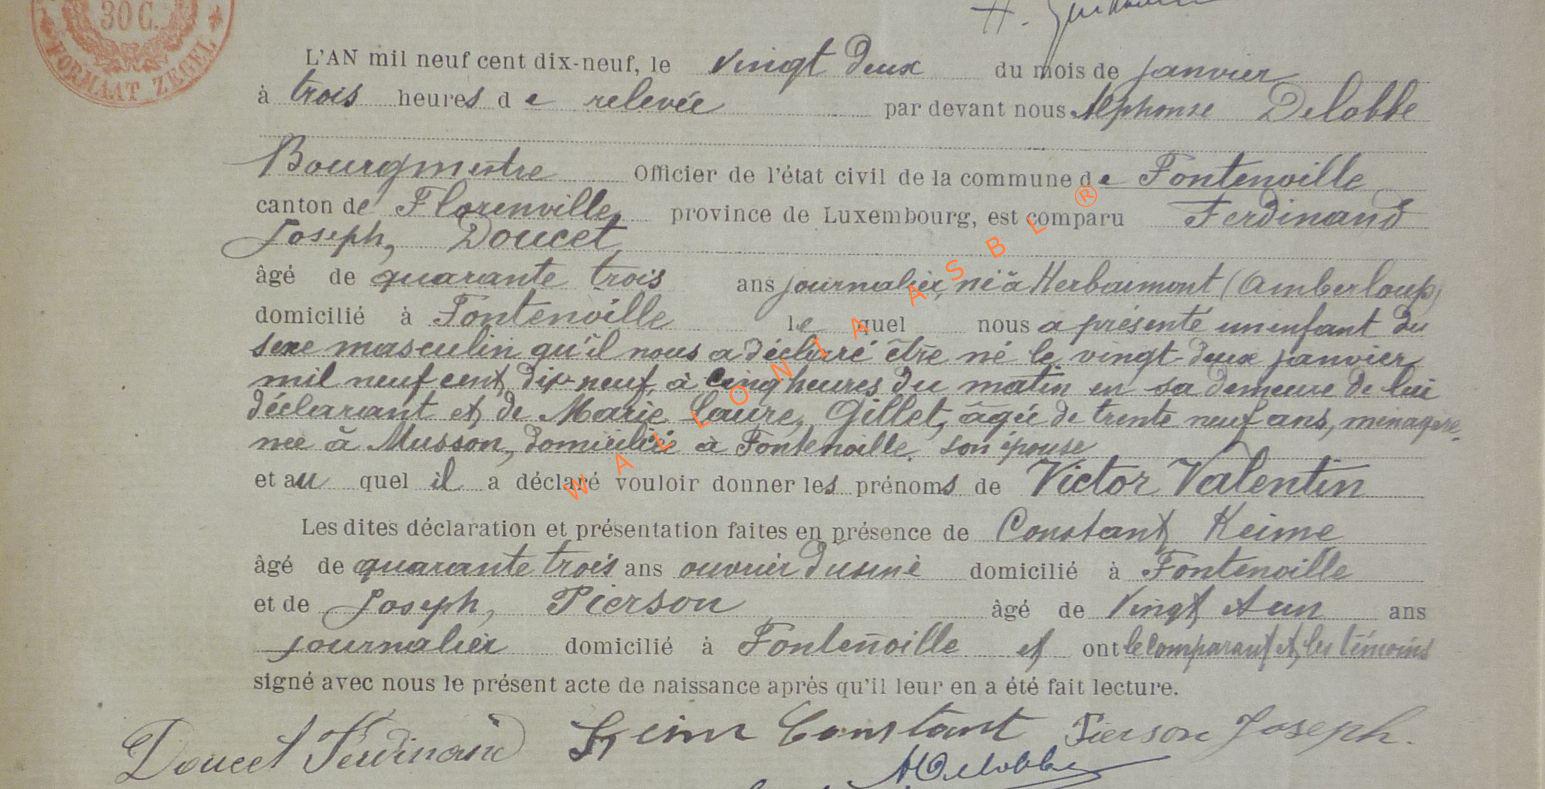 30 C.
FORMAAT ZEGEL
L'AN mil neuf cent dix-neuf, le vingt deux du mois de janvier
à trois heures de relevée par devant nous Alphonse Delobbe
Bourgmestre Officier de l'état civil de la commune de Fontenoille
canton de Florenville, province de Luxembourg, est comparu Ferdinand
Joseph, Doucet,
âgé de quarante trois ans journalier, né à Herbaimont (Amberloup)
domicilié à Fontenoille lequel nous a présenté un enfant du
sexe masculin qu'il nous a déclaré être né le vingt-deux janvier
mil neuf cent dix-neuf à cinq heures du matin en sa demeure de lui
déclarant et de Marie Laure, Gillet, âgée de trente neuf ans, ménagère,
née à Musson, domiciliée à Fontenoille, son épouse
et auquel il a déclaré vouloir donner les prénoms de Victor Valentin
Les dites déclaration et présentation faites en présence de Constant Keime
âgé de quarante trois ans ouvrier d'usine domicilié à Fontenoille
et de Joseph, Pierson âgé de vingt et un ans
journalier domicilié à Fontenoille et ont le comparant et les témoins
signé avec nous le présent acte de naissance après qu'il leur en a été fait lecture.
Doucet Ferdinand Keime Constant Pierson Joseph.
ADelobbe
WALLONIA ASBL ®